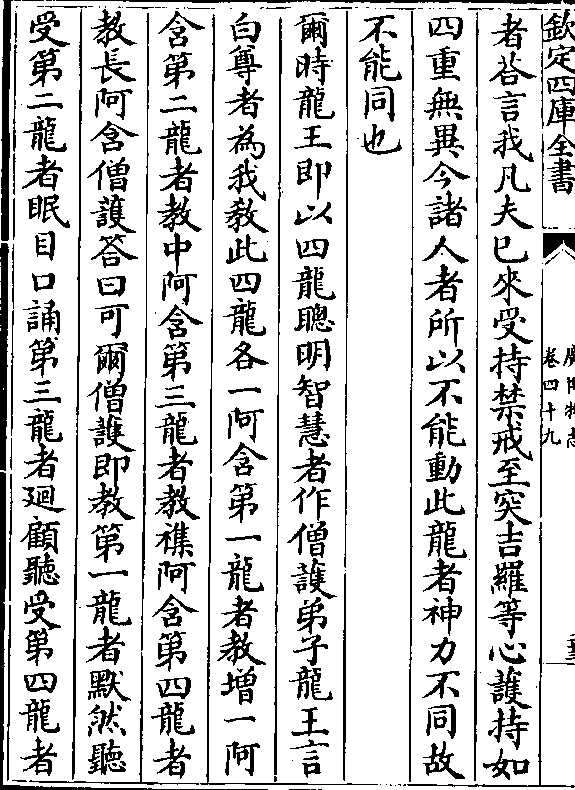 欽定四庫全書
廣博物志
卷四十九
者荅言我凡夫已來受持禁戒至突吉羅等心護持如
四重無異今諸人者所以不能動此龍者神力不同故
不能同也
爾時龍王即以四龍聰明智慧者作僧護弟子龍王言
白尊者為我教此四龍各一阿含第一龍者教增一阿
含第二龍者教中阿含第三龍者教襍阿含第四龍者
教長阿含僧護答曰可爾僧護即教第一龍者默然聽
受第二龍者眠目口誦第三龍者迴顧聽受第四龍者